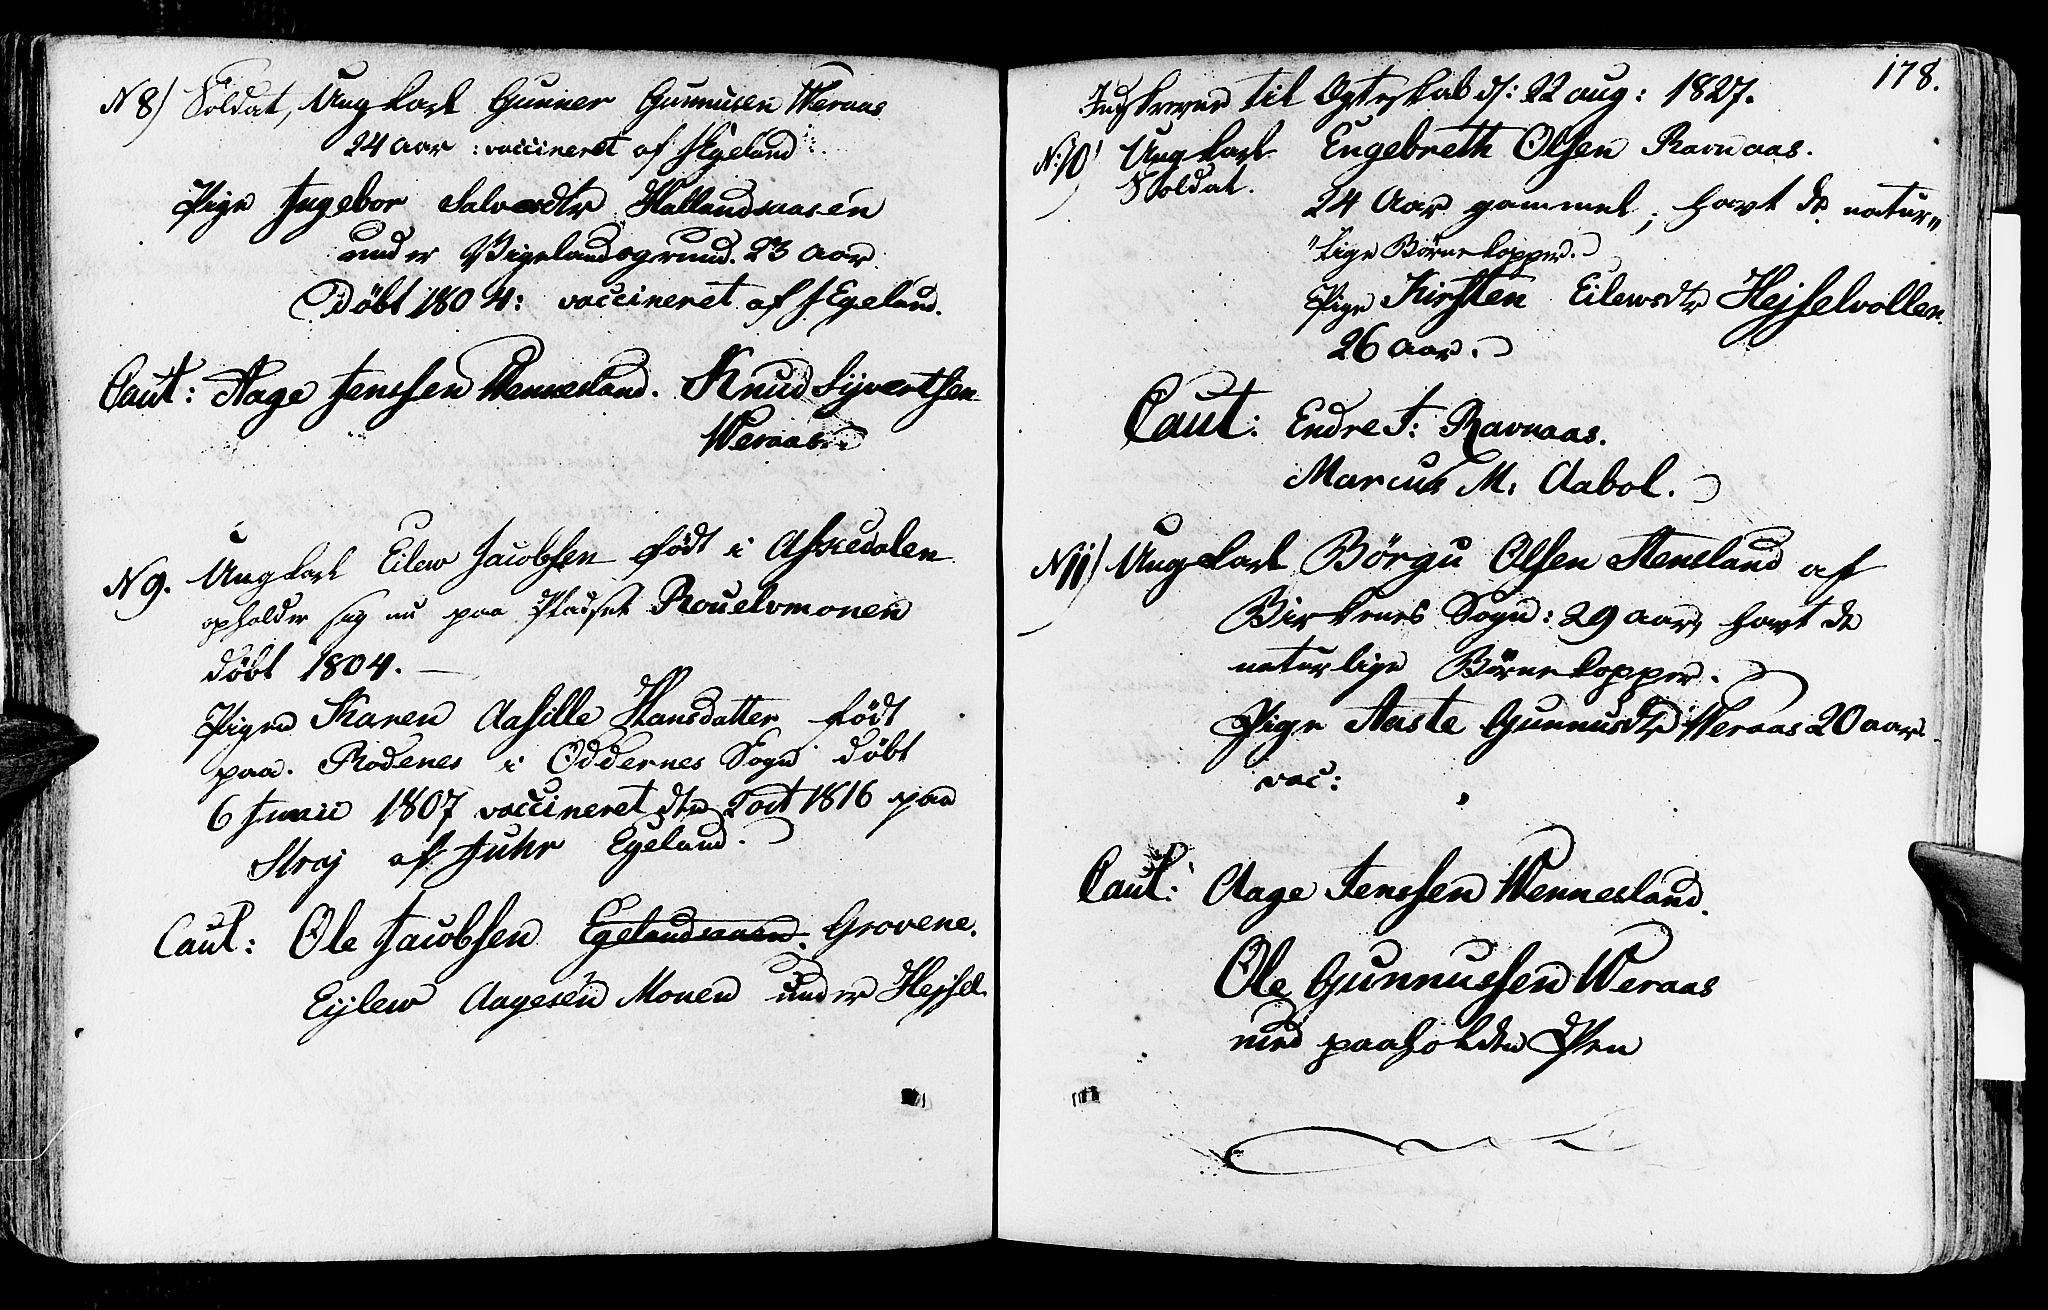 N 8) Soldat, Ungkarl Gunner Gunnusen Weraas
24 aar : vaccineret af J Egeland
Pige Ingebor Salvesdtr Hallandsaasen
under Vigelandsgrund. 23 aar.
Döbt 1804: vaccineret af J Egeland.
Caut: Aage Jenssen Wennesland. Knud Syvertsen
Weraas
N 9. Ungkarl Eilew Jacobsen født i Askedalen
opholder sig nu paa Pladset Rouelvmonen
döbt 1804. —
Pigen Karen Aasille Hansdatter født
paa Rodenes i Oddernes Sogn døbt
6 Junii 1807 vaccineret dtn 2 oct 1816 paa
Straj af Juhr Egeland.
Caut: Ole Jacobsen Egelandsaaen. Grovene.
Eÿlew Aagesen Monen under Hejsel
178.
Indskreven til Ægteskab d: 22 aug: 1827.
N: 10) Ungkarl Engebreth Olsen Ravnaas.
Soldat.
24 Aar gammel, havt de natur„
"lige Børnekopper.
Pige Kirsten Eilewsdtr Hejselvollen.
26 aar.
Caut: Endre T: Ravnaas.
Marcus M: Aabol.
N 11) Ungkarl Börgu Olsen Stensland af
Birkenes Sogn: 29 aar, havt de
naturlige Börnekopper.
Pige Aaste Gunnusdtr Weraas 20 aar
vac:
Caut: Aage Jenssen Wennesland.
Ole Gunnussen Weraas
med paaholden Pen